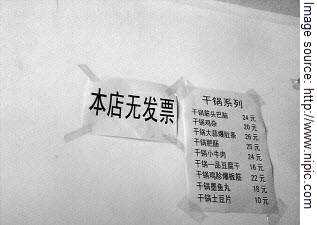 本店无发票
干锅系列
干锅筋头巴脑 24元
干锅鸡杂 20元
干锅大蒜爆肚条 26元
干锅肥肠 25元
干锅小牛肉 24元
干锅一品豆腐干 16元
干锅鸡胗爆板筋 22元
干锅墨鱼丸 18元
干锅土豆片 10元
Image source: http://www.nipic.com